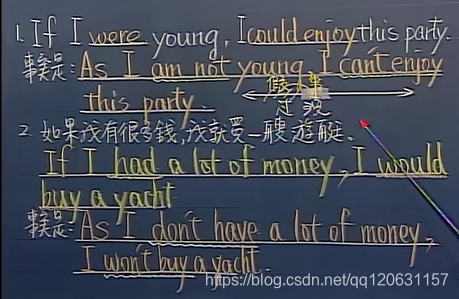 1. If I were young, I could enjoy this party.
事實是: As I am not young, I can't enjoy
this party.
2. 如果我有很多錢,我就買一艘遊艇.
If I had a lot of money, I would
buy a yacht
事實是: As I don't have a lot of money,
I won't buy a yacht.
https://blog.csdn.net/qq120631157